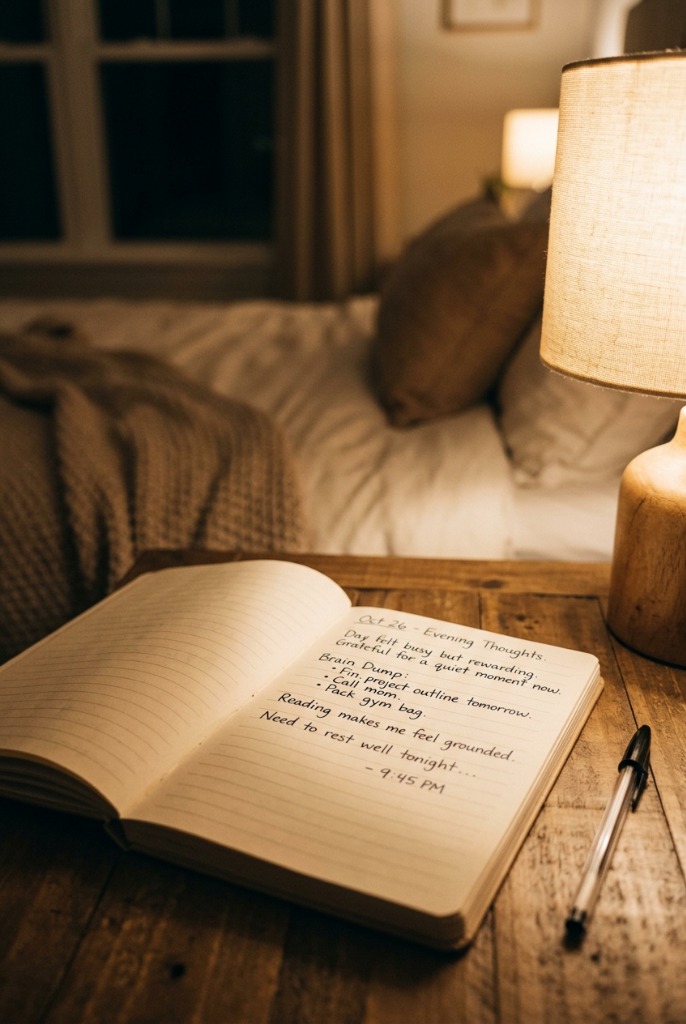 Oct 26 - Evening Thoughts.
Day felt busy but rewarding.
Grateful for a quiet moment now.
Brain Dump:
• Fin. project outline tomorrow.
• Call mom.
• Pack gym bag.
Reading makes me feel grounded.
Need to rest well tonight...
- 9:45 PM